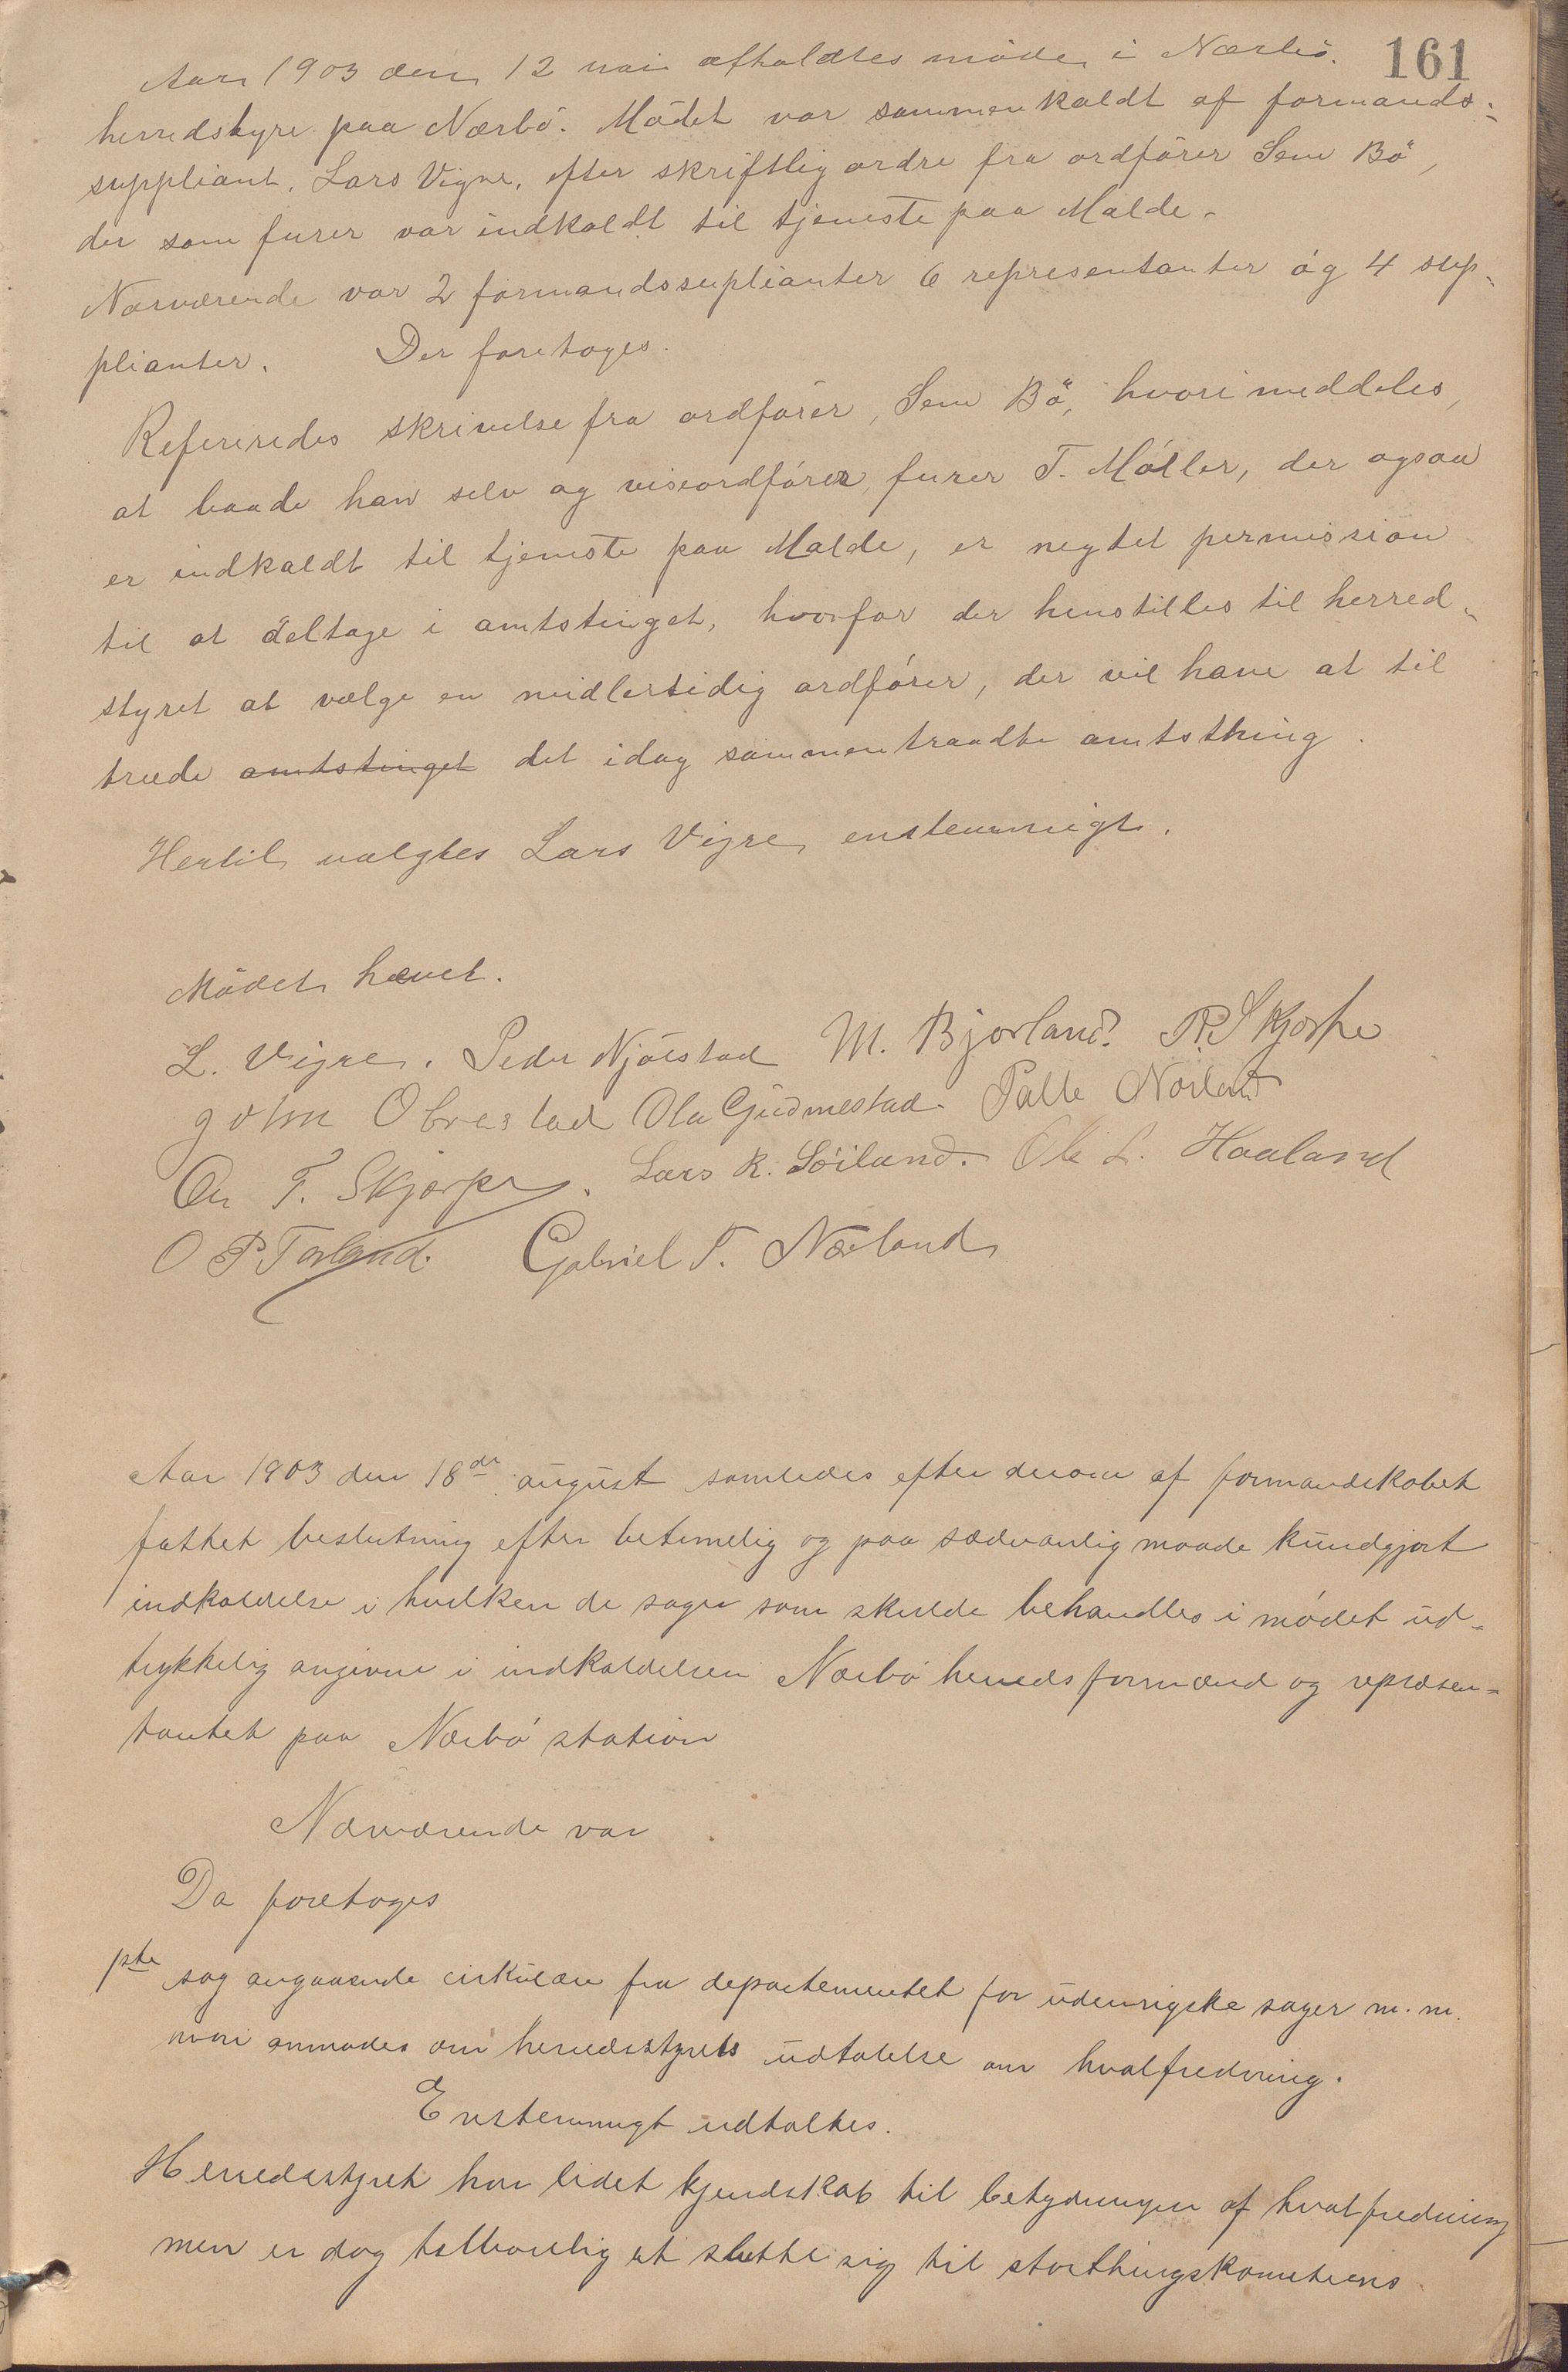 161
Aar 1903 den 12 mai afholdtes møde i Nærbö.
herredstyre paa Nærbö. Mödet var sammenkaldt af formands-
suppliant, Lars Vigre, efter skriftlig ordre fra ordförer Sem Bö,
der som furer var indkaldt til tjeneste paa Malde.
Nærværende var 2 formandssuplianter 6 representanter og 4 sup-
plianter. Der foretoges.
Refereredes skrivelse fra ordförer, Sem Bö, hvori meddeles,
at baade han selv og viseordförer, furer T. Möller, der ogsaa
er indkaldt til tjeneste paa Malde, er negtet permission
til at deltage i amtstinget, hvorfor der henstilles til herred-
styret at vælge en midlertidig ordförer, der vil have at til
træde amtstinget det idag sammentraadte amtsthing.
Hertil valgtes Lars Vigre enstemmigt.
Mödet hævet.
L. Vigre. Peder Njölstad M. Bjorland. R. Skjorpe
John Obrestad Ola Gudmestad. Palle Norland
On T. Skjorpe. Lars R. Söiland. Ole L. Haaland
O P Torland. Gabriel T. Nærland
Aar 1903 den 18de august samledes efter derom af formandskabet
fattet beslutning efter betimelig og paa sædvanlig maade kundgjort
indkaldelse i hvilken de sager som skulde behandles i mødet ud-
trykkelig angivne i indkaldelsen Nærbö herreds formænd og repræsen-
tantet paa Nærbö station
Nærværende var
Da foretoges
1ste sag angaaende cirkulære fra departementet for udenrigske sager m.m.
hvori anmodes om herredsstyrets udtalelse om hvalfredning.
Enstemmigt udtaltes.
Herredsstyret har lidet kjendskab til betydningen af hvalfredning
men er dog tilbøielig at slutte sig til storthingskomiteens